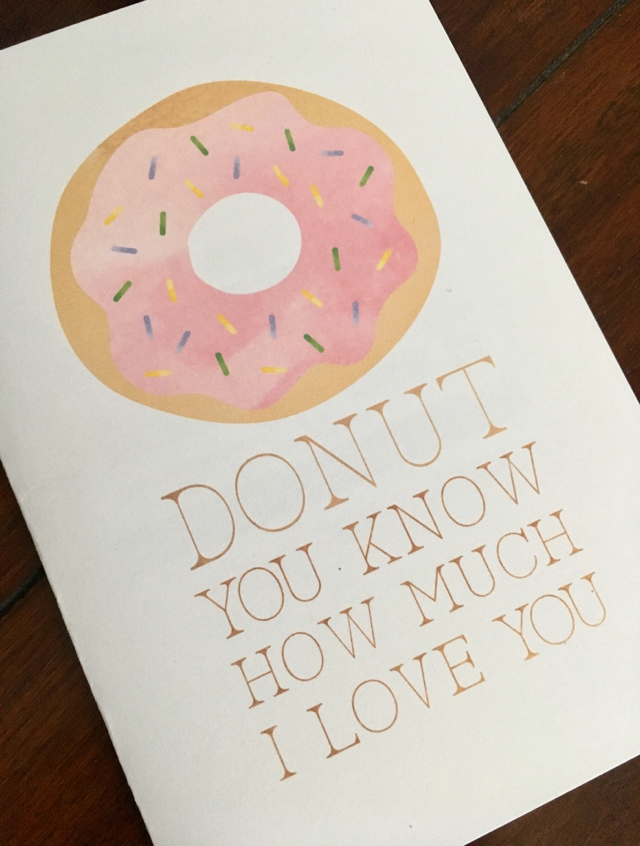 DONUT
YOU KNOW
HOW MUCH
I LOVE YOU